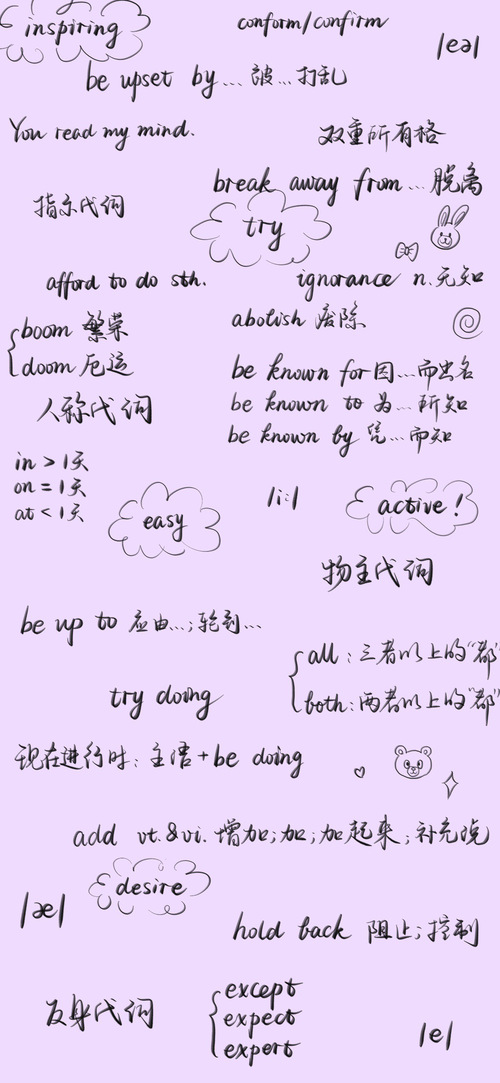 inspiring
conform/confirm
|eə|
be upset by... 被...打乱
You read my mind.
双重所有格
break away from...脱离
指示代词
try
afford to do sth.
ignorance n.无知
boom 繁荣
doom 厄运
abolish 废除
人称代词
be known for因...而出名
be known to 为...所知
be known by 凭...而知
in > 1天
on = 1天
at < 1天
easy
|i:|
active!
物主代词
be up to 应由...;轮到...
all:三者以上的"都"
both:两者以上的"都"
try doing
现在进行时:主语+be doing
add vt.&vi.增加;加;加起来;补充说
desire
|æ|
hold back 阻止;控制
反身代词
except
expect
expert
|e|